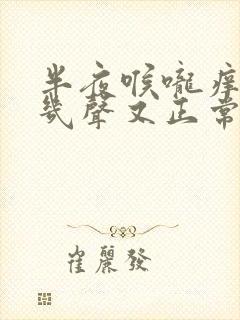 半夜喉嚨痒
幾聲又正常
崔麗發